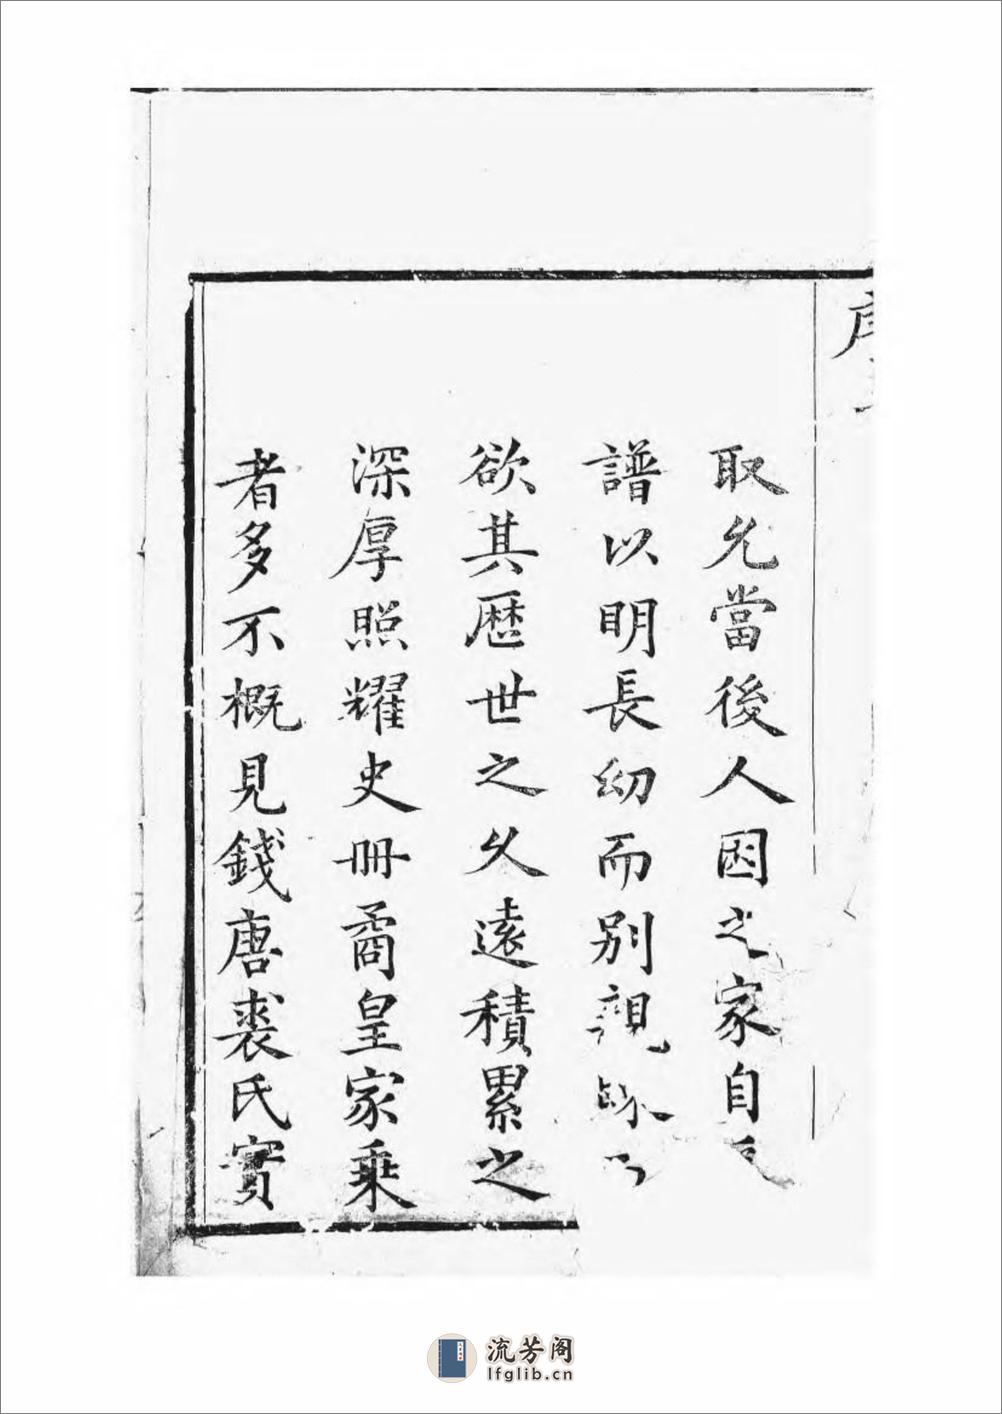 序
取允當後人因之家自
譜以明長幼而別親
欲其歴世之久遠積累之
深厚照耀史冊矞皇家乗
者多不概見錢唐裘氏實
流芳阁
lfglib.cn